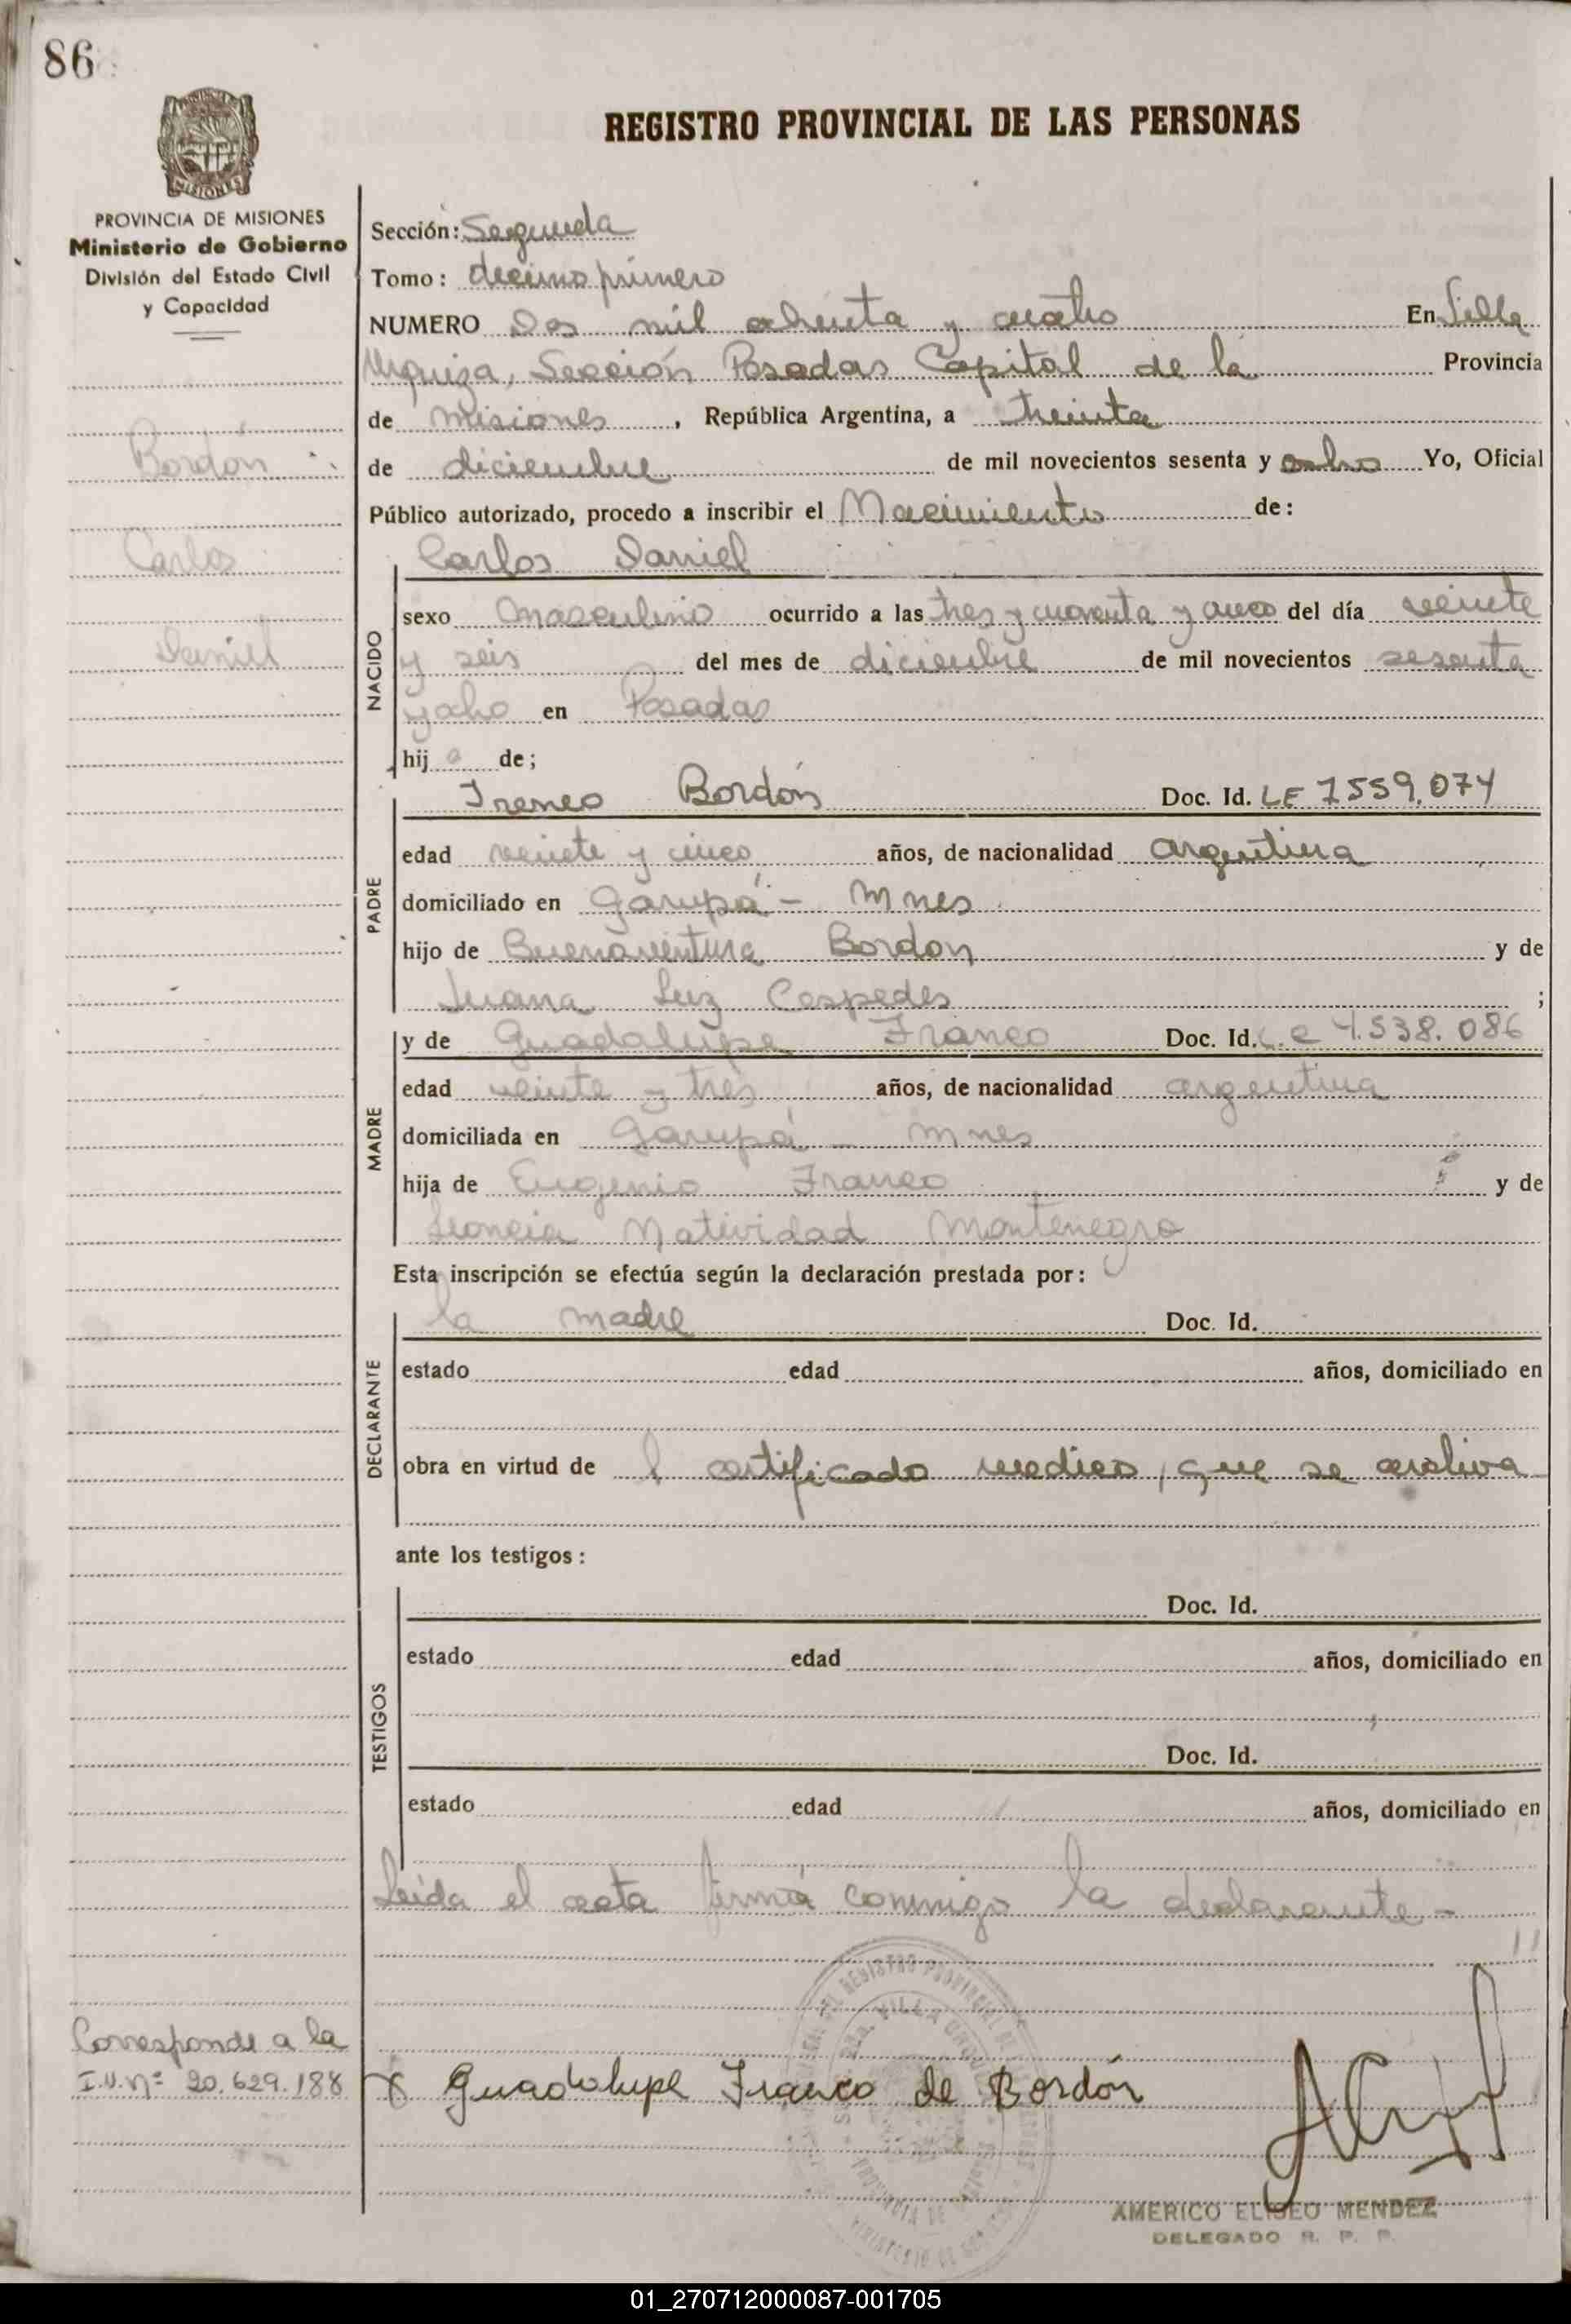 86
REGISTRO PROVINCIAL DE LAS PERSONAS
MISIONES
PROVINCIA DE MISIONES
Ministerio de Gobierno
División del Estado Civil
y Capacidad
Bordón
Carlos
Daniel
Sección: Segunda
Tomo: decimo primero
NUMERO Dos mil ochenta y cuatro En Villa
Urquiza, Sección Posadas Capital de la Provincia
de Misiones, República Argentina, a treinta
de diciembre de mil novecientos sesenta y ocho Yo, Oficial
Público autorizado, procedo a inscribir el Nacimiento de:
Carlos Daniel
NACIDO
sexo masculino ocurrido a las tres y cuarenta y cinco del día veinte
y seis del mes de diciembre de mil novecientos sesenta
y ocho en Posadas
hijo de;
PADRE
Ireneo Bordón Doc. Id. LE 7559.074
edad veinte y cinco años, de nacionalidad argentina
domiciliado en Garupá - Mnes
hijo de Buenaventura Bordon y de
Juana Luz Cespedes ;
MADRE
y de Guadalupe Franco Doc. Id. L.C 4.538.086
edad veinte y tres años, de nacionalidad argentina
domiciliada en Garupá - Mnes
hija de Eugenio Franco y de
Leoncia Natividad Montenegro
Esta inscripción se efectúa según la declaración prestada por:
DECLARANTE
la madre Doc. Id.
estado edad años, domiciliado en
obra en virtud de l certificado medico, que se archiva
ante los testigos:
TESTIGOS
Doc. Id.
estado edad años, domiciliado en
Doc. Id.
estado edad años, domiciliado en
Leída el acta firma conmigo la declarante -
Corresponde a la
I.U. Nº 20.629.188
Guadalupe Franco de Bordón
AMERICO ELISEO MENDEZ
DELEGADO R. P. P.
01_270712000087-001705